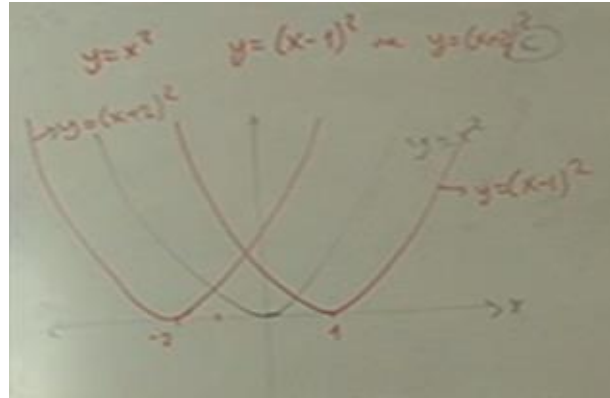 y = x² y = (x-1)² y = (x+2)²
y = (x+2)²
y = x²
y = (x-1)²
x
-2 1